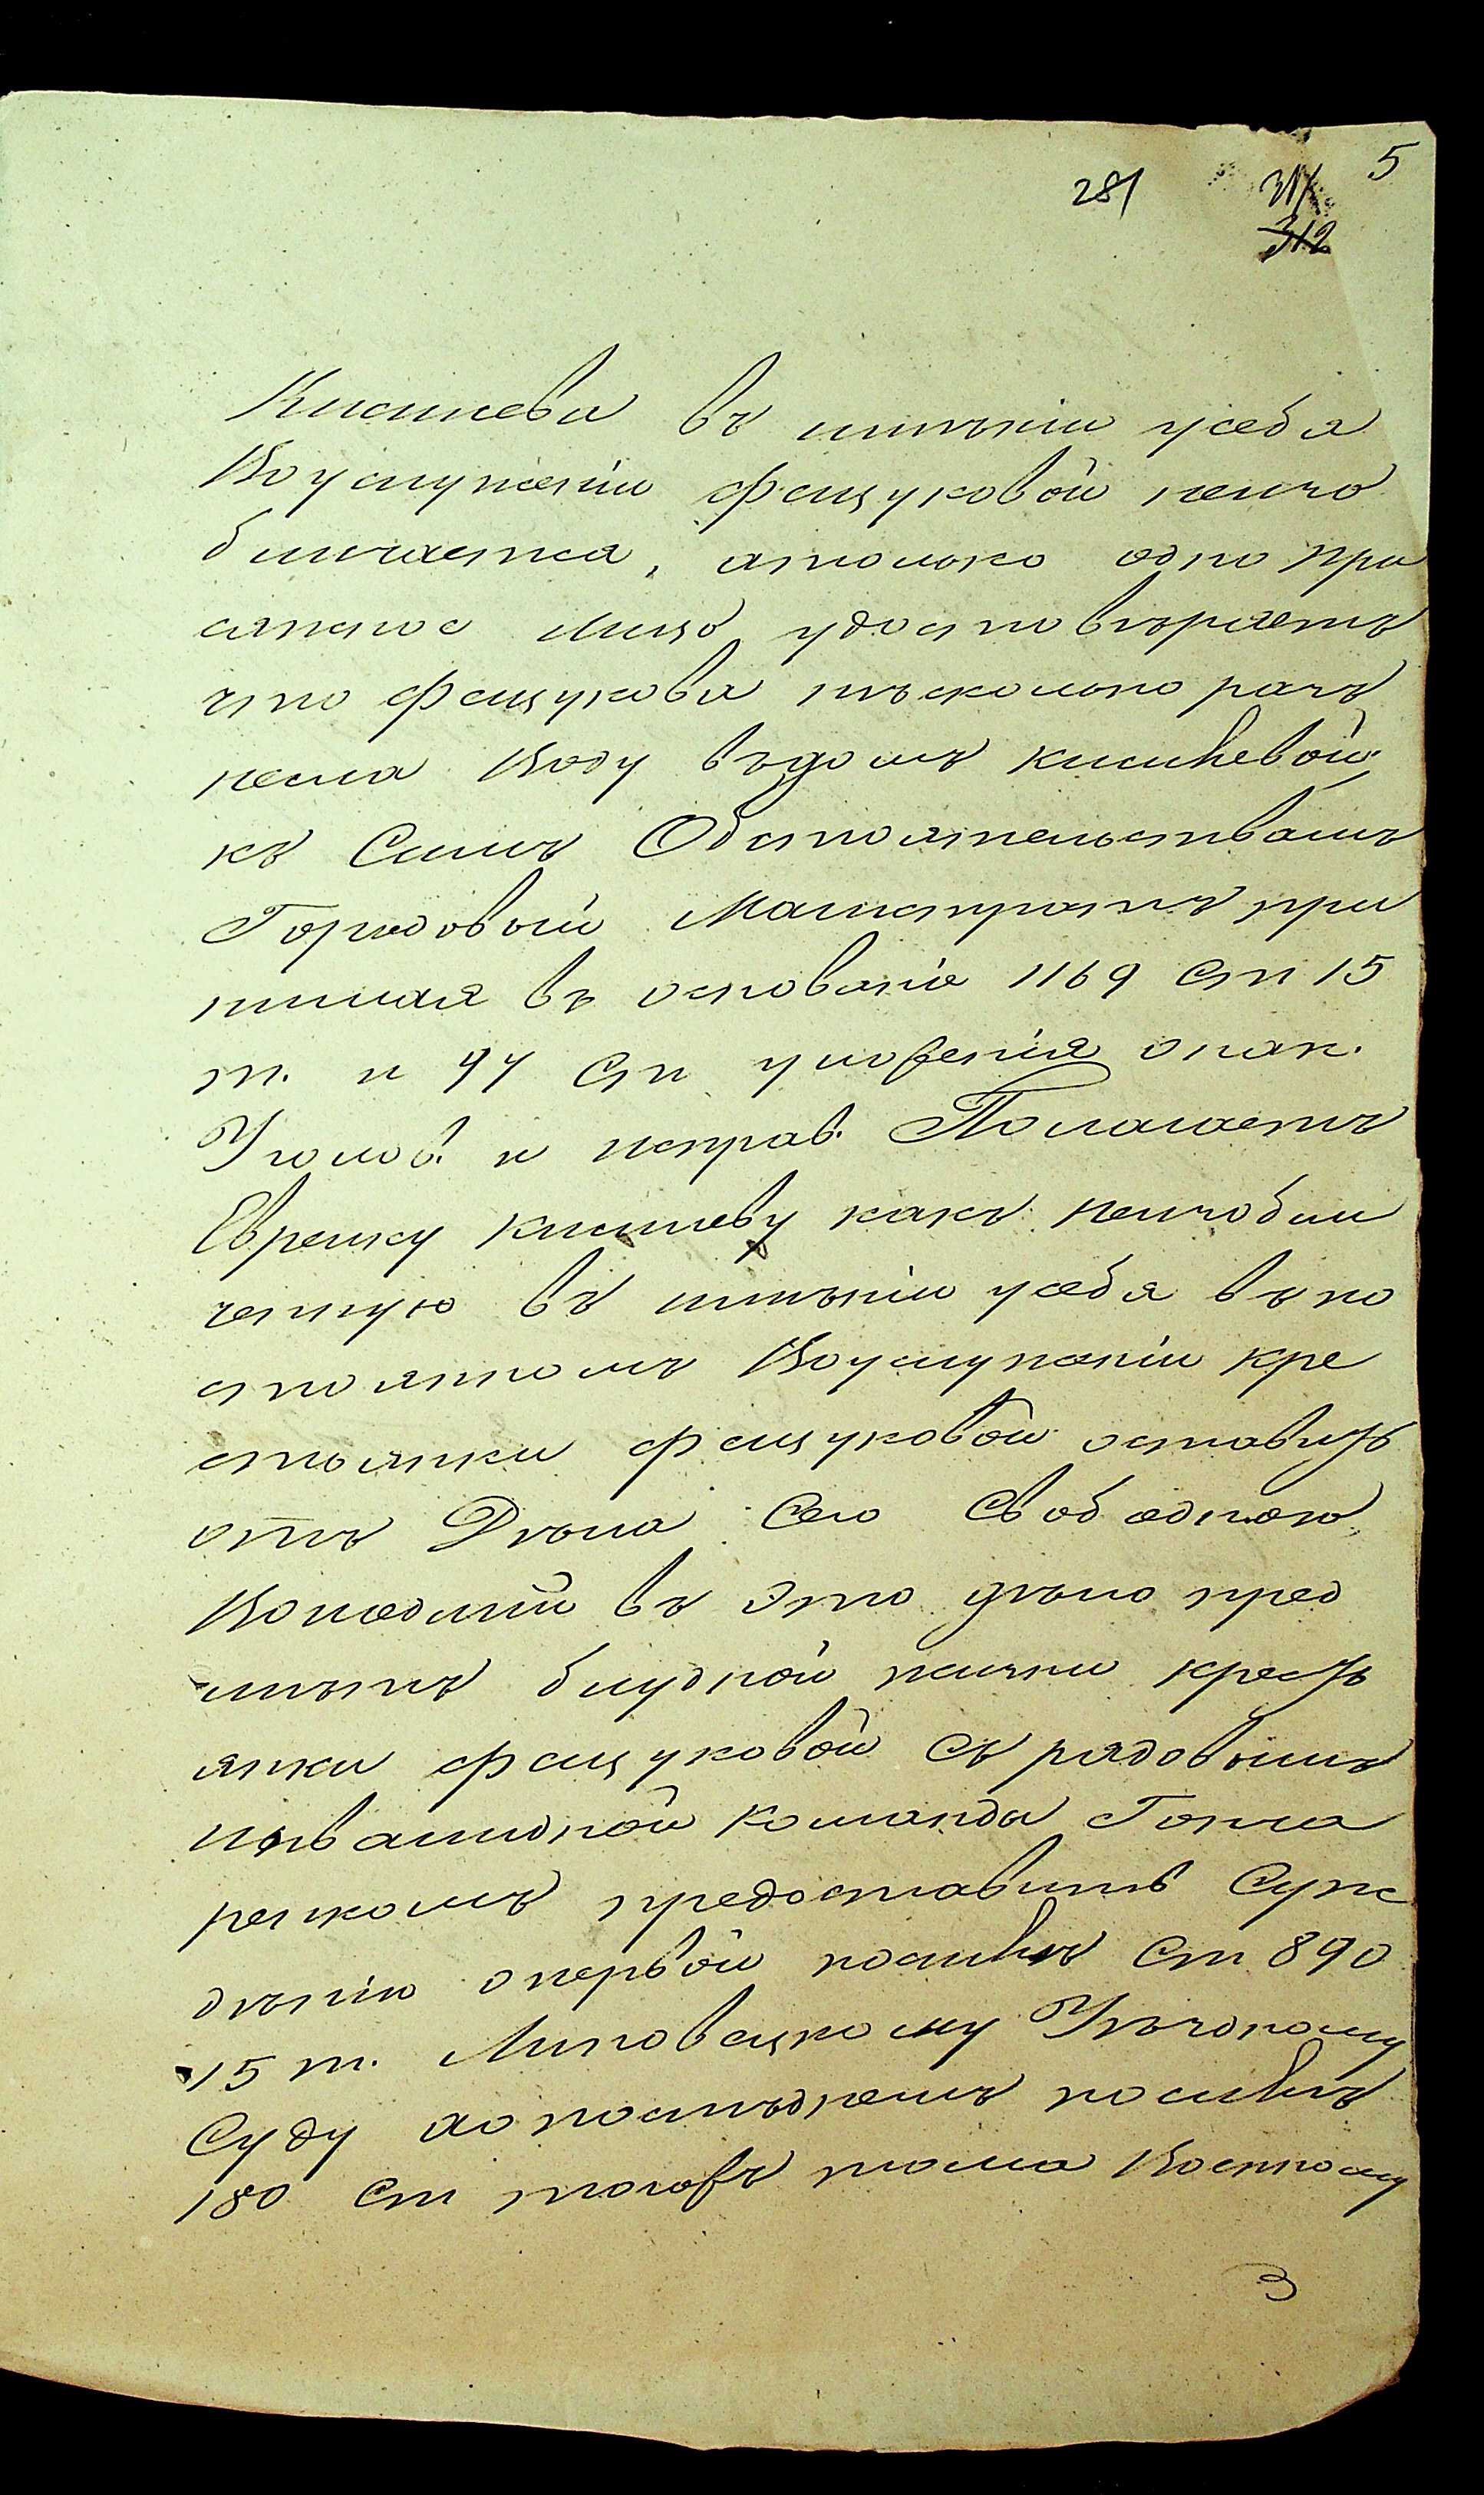 5
281 311
312
Кисилева въ имѣніи усебя
Воуслуженіи Фащуковой неизо
бличается, атолько одно при
сяжное Лицо удостовѣряетъ
что Фащукова нѣсколько разъ
несла Воду въдомъ Кисилевой,
къ Симъ Обстоятельствамъ
Городовый Магистратъ при
нимая въ основаніе 1169 Ст 15
т. и 97 Ст уложенія о нак.
Уголов. и исправ. Полагаетъ
Еврейку Кисилеву какъ неизобли
ченную въ имѣніи усебя въ по
стоянномъ Воуслуженіи Кре
стьянки Фащуковой оставить
отъ Дѣла Сего Свободною,
Вошедшій въ Это дѣло пред
мѣтъ блудной жизни Кресть
янки Фащуковой Съ рядовымъ
инвалидной Команды Гонча
ренкомъ предоставить Суж
дѣнію опервой посилѣ Ст 890
15 т. Липовецкому Уѣздному
Суду а о послѣднемъ посилѣ
180 Ст тогожъ тома Военному